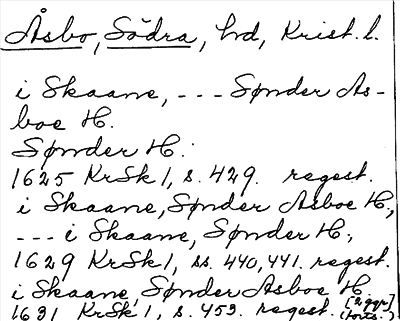 Åsbo, Södra, hd, Krist. l.
i Skaane, --- Sønder As-
boe H.
Sønder H.
1625 KrSk 1, s. 429. regest.
i Skaane, Sønder Asboe H,
--- i Skaane, Sønder H,
1629 KrSk 1, ss. 440, 441. regest.
i Skaane, Sønder Asboe H [2 ggr]
1631 KrSk 1, s. 453. regest. (forts.)